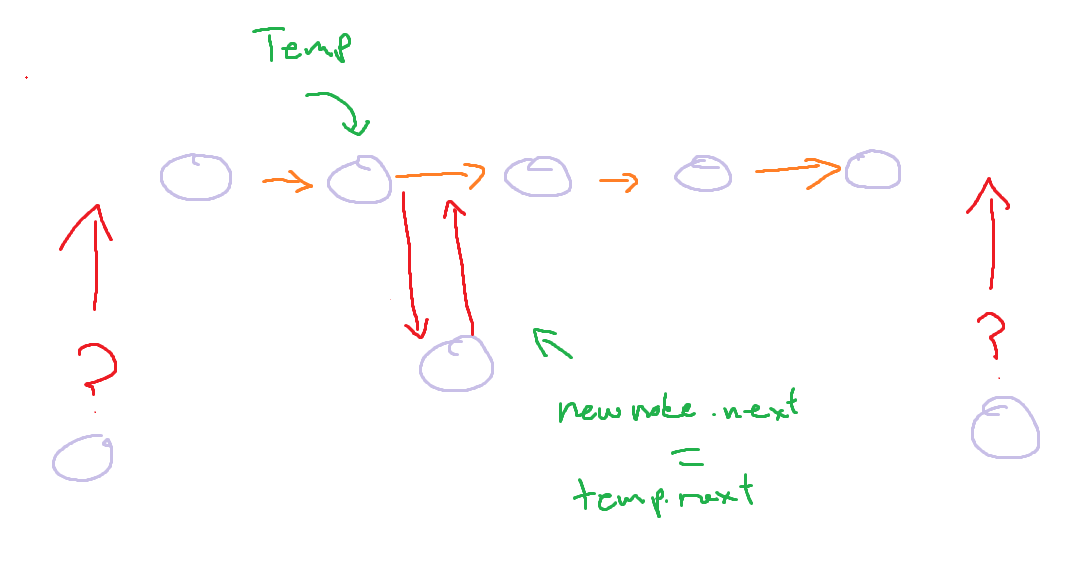 Temp
?
?
newnote.next
=
temp.next